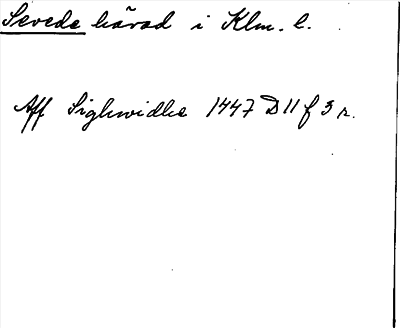 Sevede härad i Klm. l.
Aff Sighwidhe 1447 D 11 f 3 r.